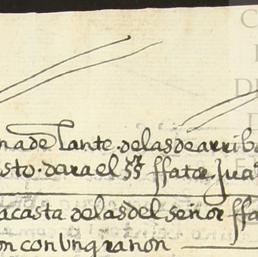 nade lante. delas de arriba
sto. dara el ss.r ffator Jua
acasta delas del señor ffa
on con un granon